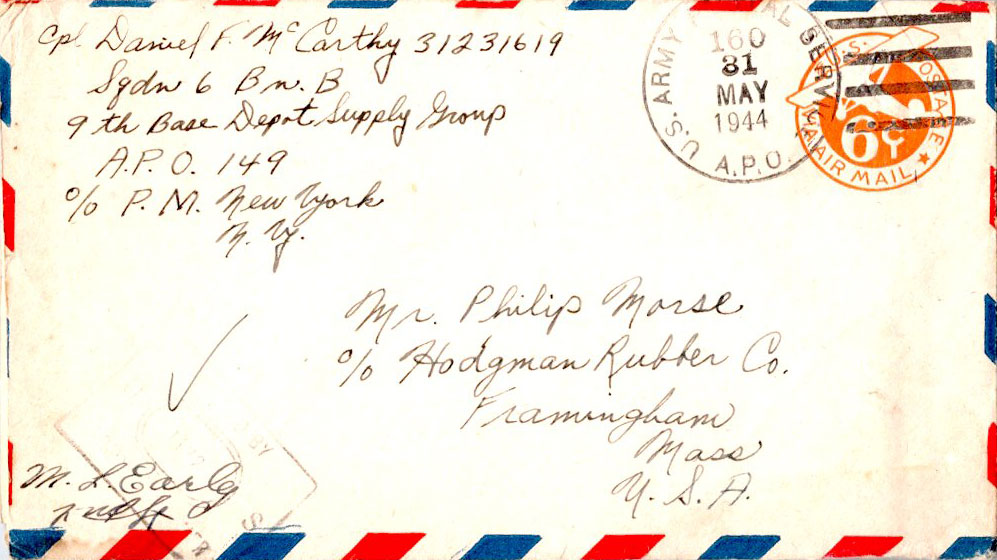 Cpl. Daniel F. McCarthy 31231619
Sqdn 6 Bn. B
9th Base Depot Supply Group
A.P.O. 149
c/o P. M. New York
N. Y.
U.S. ARMY POSTAL SERVICE
160
31
MAY
1944
A.P.O.
U.S. POSTAGE
6¢
VIA AIR MAIL
Mr. Philip Morse
c/o Hodgman Rubber Co.
Framingham
Mass
U. S. A.
BY
M. L. Early